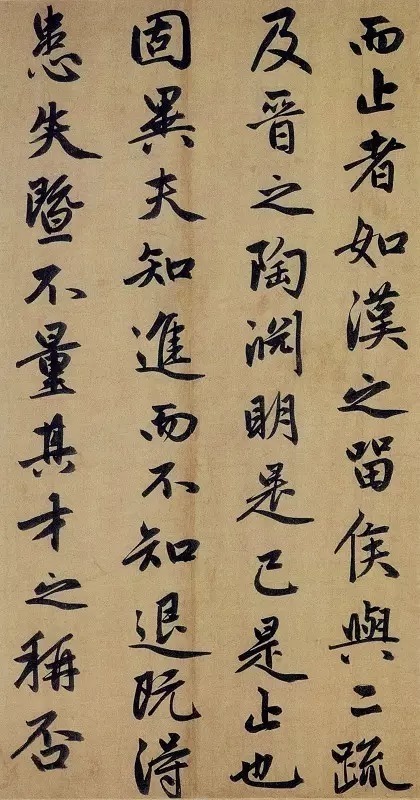 而止者如漢之留侯與二疏
及晋之陶淵明是已是止也
固異夫知進而不知退既得
患失暨不量其才之稱否